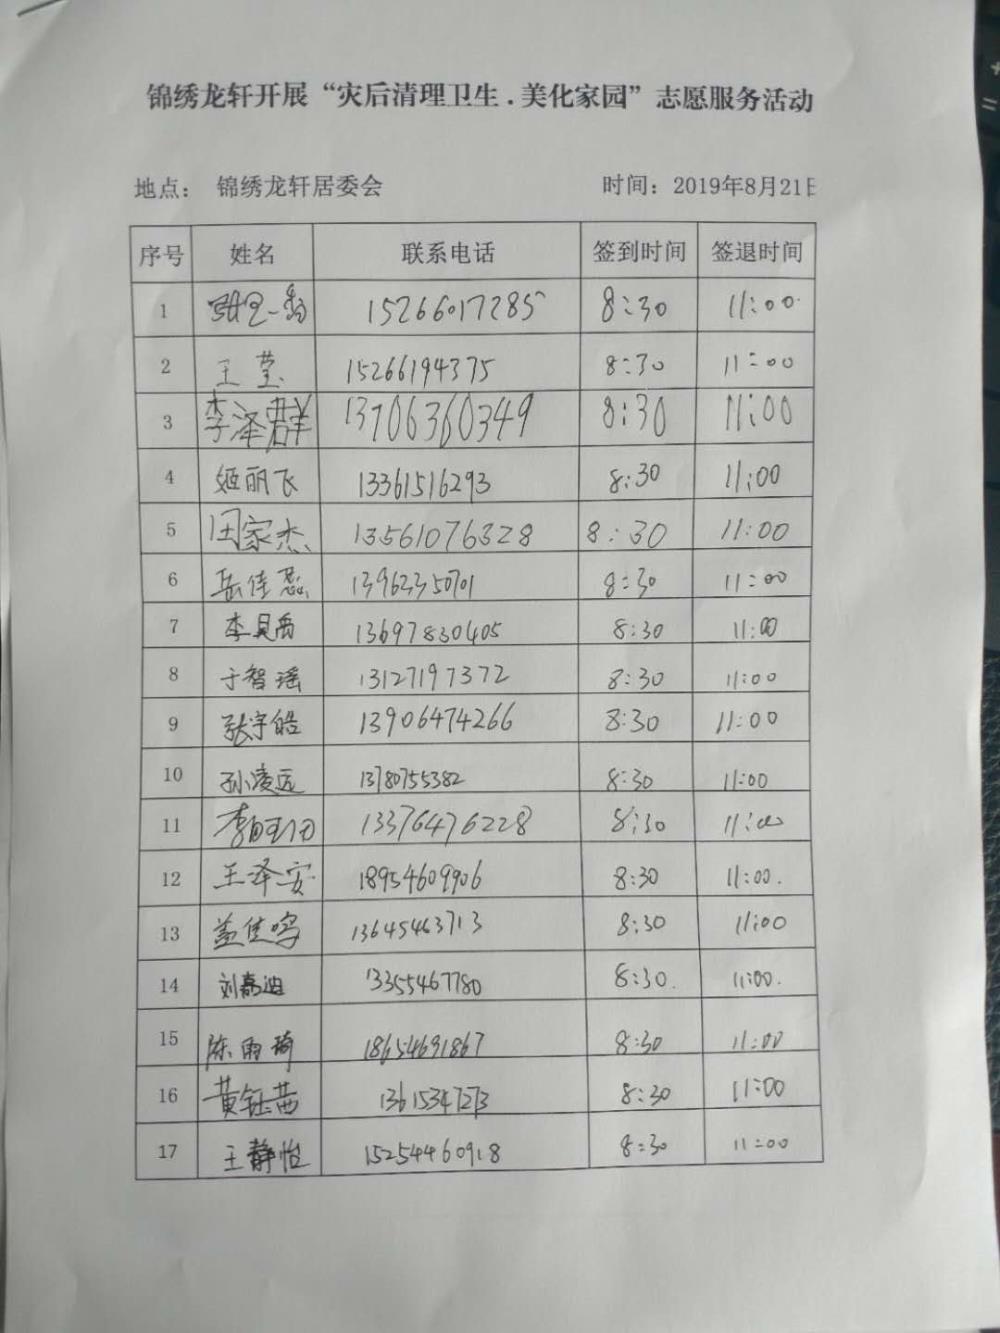 锦绣龙轩开展“灾后清理卫生.美化家园”志愿服务活动
地点: 锦绣龙轩居委会 时间: 2019年8月21日
序号 姓名 联系电话 签到时间 签退时间
1 15266017285 8:30 11:00
2 王莹 15266194375 8:30 11:00
3 李泽群 13706360349 8:30 11:00
4 姬丽飞 13361516293 8:30 11:00
5 田家杰 13561076328 8:30 11:00
6 岳佳蕊 13962350701 8:30 11:00
7 李昊禹 13697830405 8:30 11:00
8 于智瑶 13127197372 8:30 11:00
9 张宇皓 13906474266 8:30 11:00
10 孙凌远 13780755382 8:30 11:00
11 13376476228 8:30 11:00
12 王泽安 18954609906 8:30 11:00
13 盖佳鸣 13645463713 8:30 11:00
14 刘嘉迪 13355467780 8:30. 11:00.
15 陈雨琦 18654691867 8:30 11:00
16 黄钰茜 13615347273 8:30 11:00
17 王静怡 15254460918 8:30 11:00